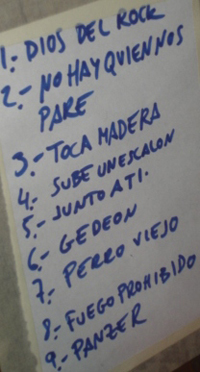 1.- DIOS DEL ROCK
2.- NO HAY QUIEN NOS
PARE
3.- TOCA MADERA
4.- SUBE UN ESCALON
5.- JUNTO A TI.
6.- GEDEON
7.- PERRO VIEJO
8.- FUEGO PROHIBIDO
9.- PANZER